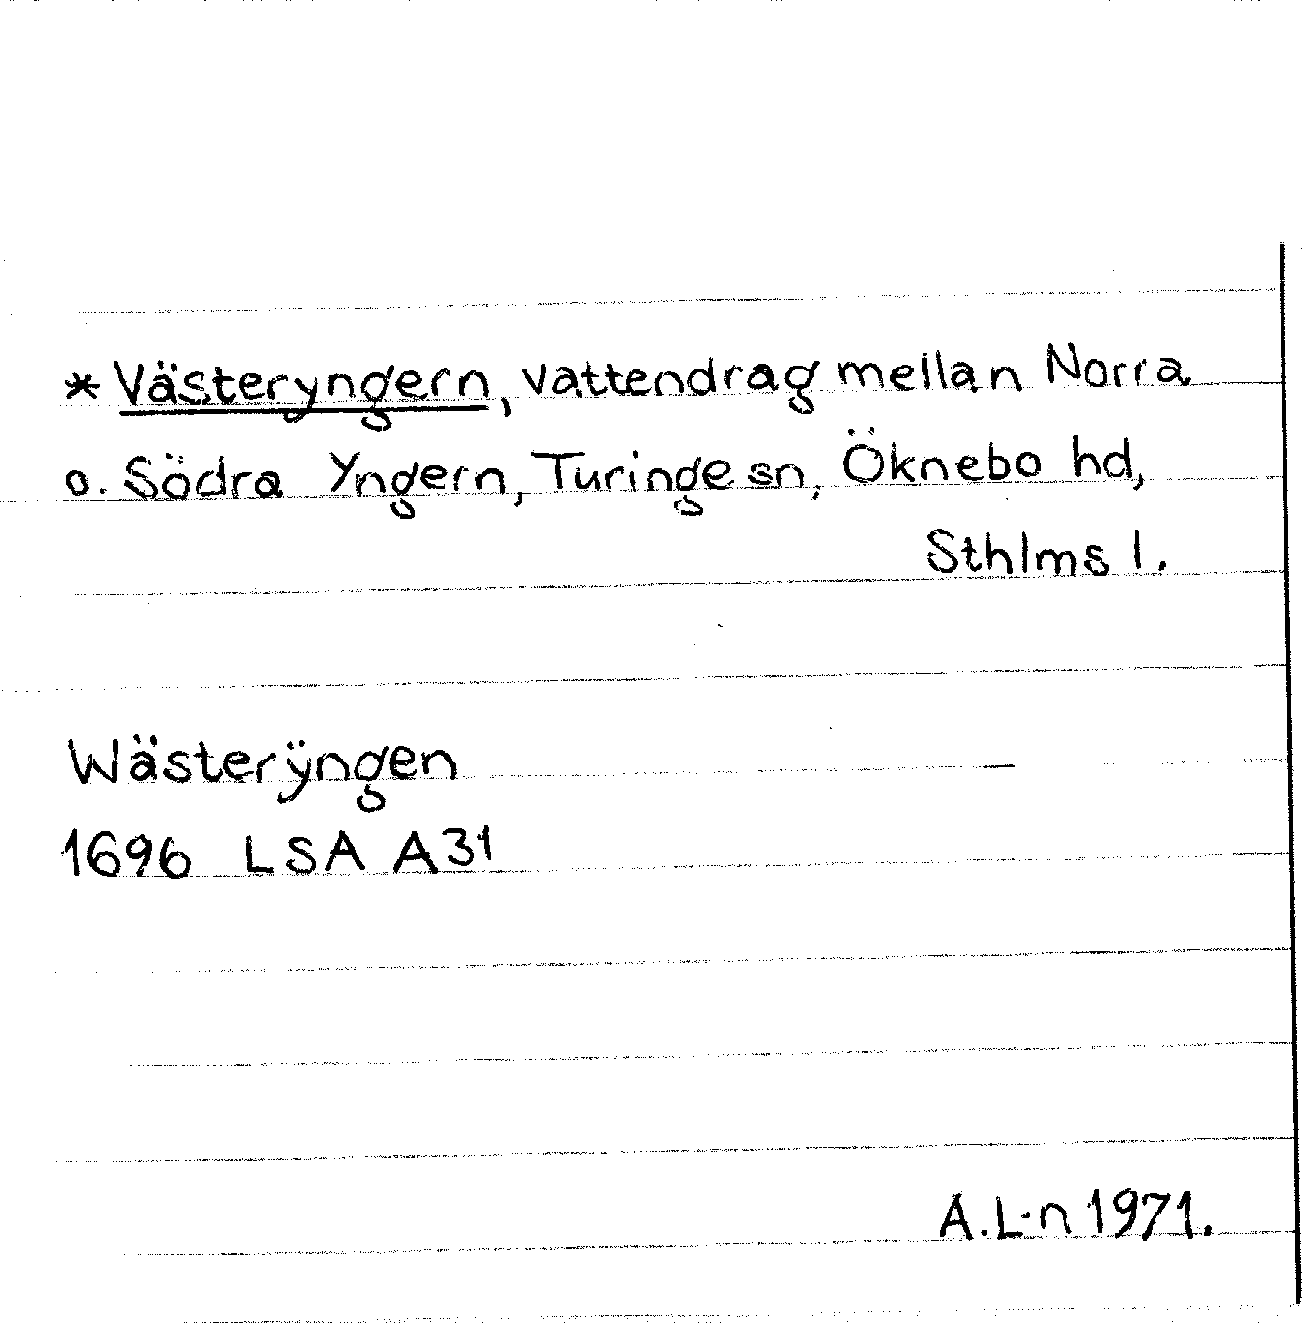 * Västeryngern, vattendrag mellan Norra
o. Södra Yngern, Turinge sn, Öknebo hd,
Sthlms l.
Wästerÿngen
1696 LSA A31
A.L-n 1971.